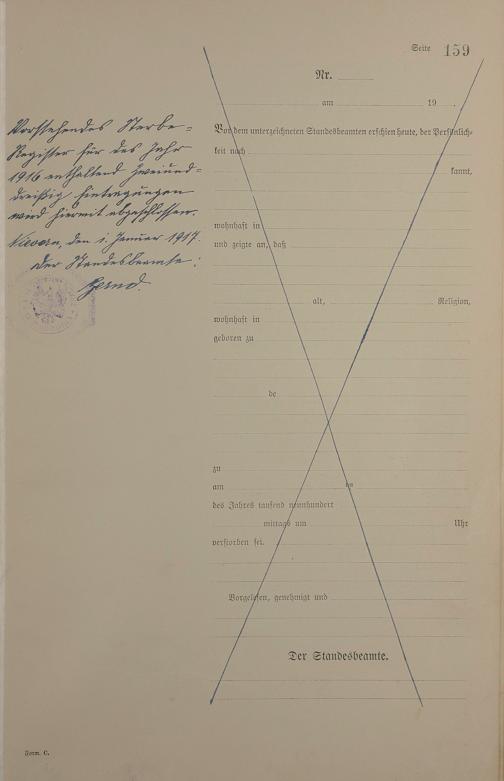 Seite 159
Nr.
am 19 .
Vorstehendes Sterbe=
Register für das Jahr
1916 enthaltend zweiund=
dreißig Eintragungen
wird hiermit abgeschlossen.
Nievern, den 1. Januar 1917.
Der Standesbeamte:
Vor dem unterzeichneten Standesbeamten erschien heute, der Persönlich-
keit nach
kannt,
wohnhaft in
und zeigte an, daß
alt, Religion,
wohnhaft in
geboren zu
de
zu
am
des Jahres tausend neunhundert
mittags um Uhr
verstorben sei.
Vorgelesen, genehmigt und
Der Standesbeamte.
Form. C.